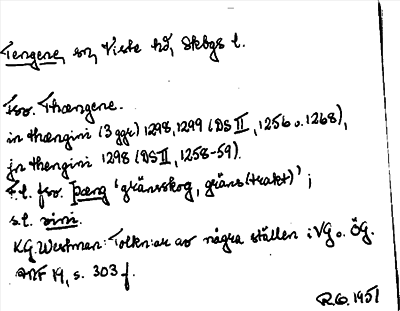 Tengene, sn, Viste hd, Skbgs l.
Fsv. Thængene.
in thængini (3 ggr) 1298, 1299 (DS II, 1256 o. 1268),
jn thengini 1298 (DS II, 1258-59).
F.l. fsv. þæng 'gränsskog, gräns(trakt)';
s.l. vini.
K.G. Westman: Tolkn:ar av några ställen i VG o. ÖG.
19, s. 303 f.
1951